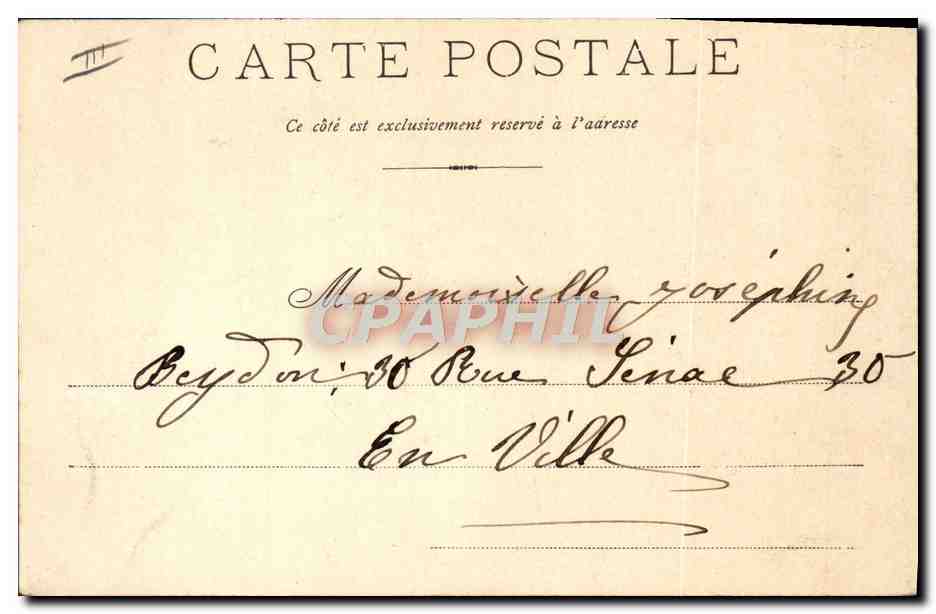 CARTE POSTALE
Ce côté est exclusivement reservé à l'adresse
Mademoiselle Joséphine
CPAPHIL
Beydon; 30 Rue Sénac 30
En Ville